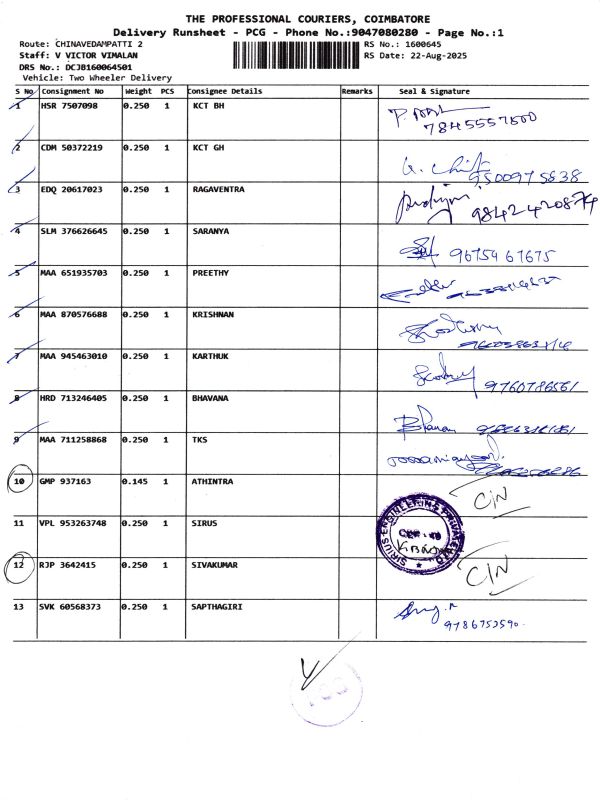 THE PROFESSIONAL COURIERS, COIMBATORE
Delivery Runsheet - PCG - Phone No.:9047080280 - Page No.:1
Route: CHINAVEDAMPATTI 2
RS No.: 1600645
Staff: V VICTOR VIMALAN
RS Date: 22-Aug-2025
DRS No.: DCJB160064501
Vehicle: Two Wheeler Delivery
S No Consignment No Weight PCS Consignee Details Remarks Seal & Signature
1 HSR 7507098 0.250 1 KCT BH
7845557500
2 CDM 50372219 0.250 1 KCT GH
9500975838
3 EDQ 20617023 0.250 1 RAGAVENTRA
9842420874
4 SLM 376626645 0.250 1 SARANYA
9675467675
5 MAA 651935703 0.250 1 PREETHY
6 MAA 870576688 0.250 1 KRISHNAN
7 MAA 945463010 0.250 1 KARTHUK
9760786561
8 HRD 713246405 0.250 1 BHAVANA
9 MAA 711258868 0.250 1 TKS
10 GMP 937163 0.145 1 ATHINTRA C/N
11 VPL 953263748 0.250 1 SIRUS
SIRIUS ENGINEERING PRIVATE
12 RJP 3642415 0.250 1 SIVAKUMAR C/N
13 SVK 60568373 0.250 1 SAPTHAGIRI
9786753590